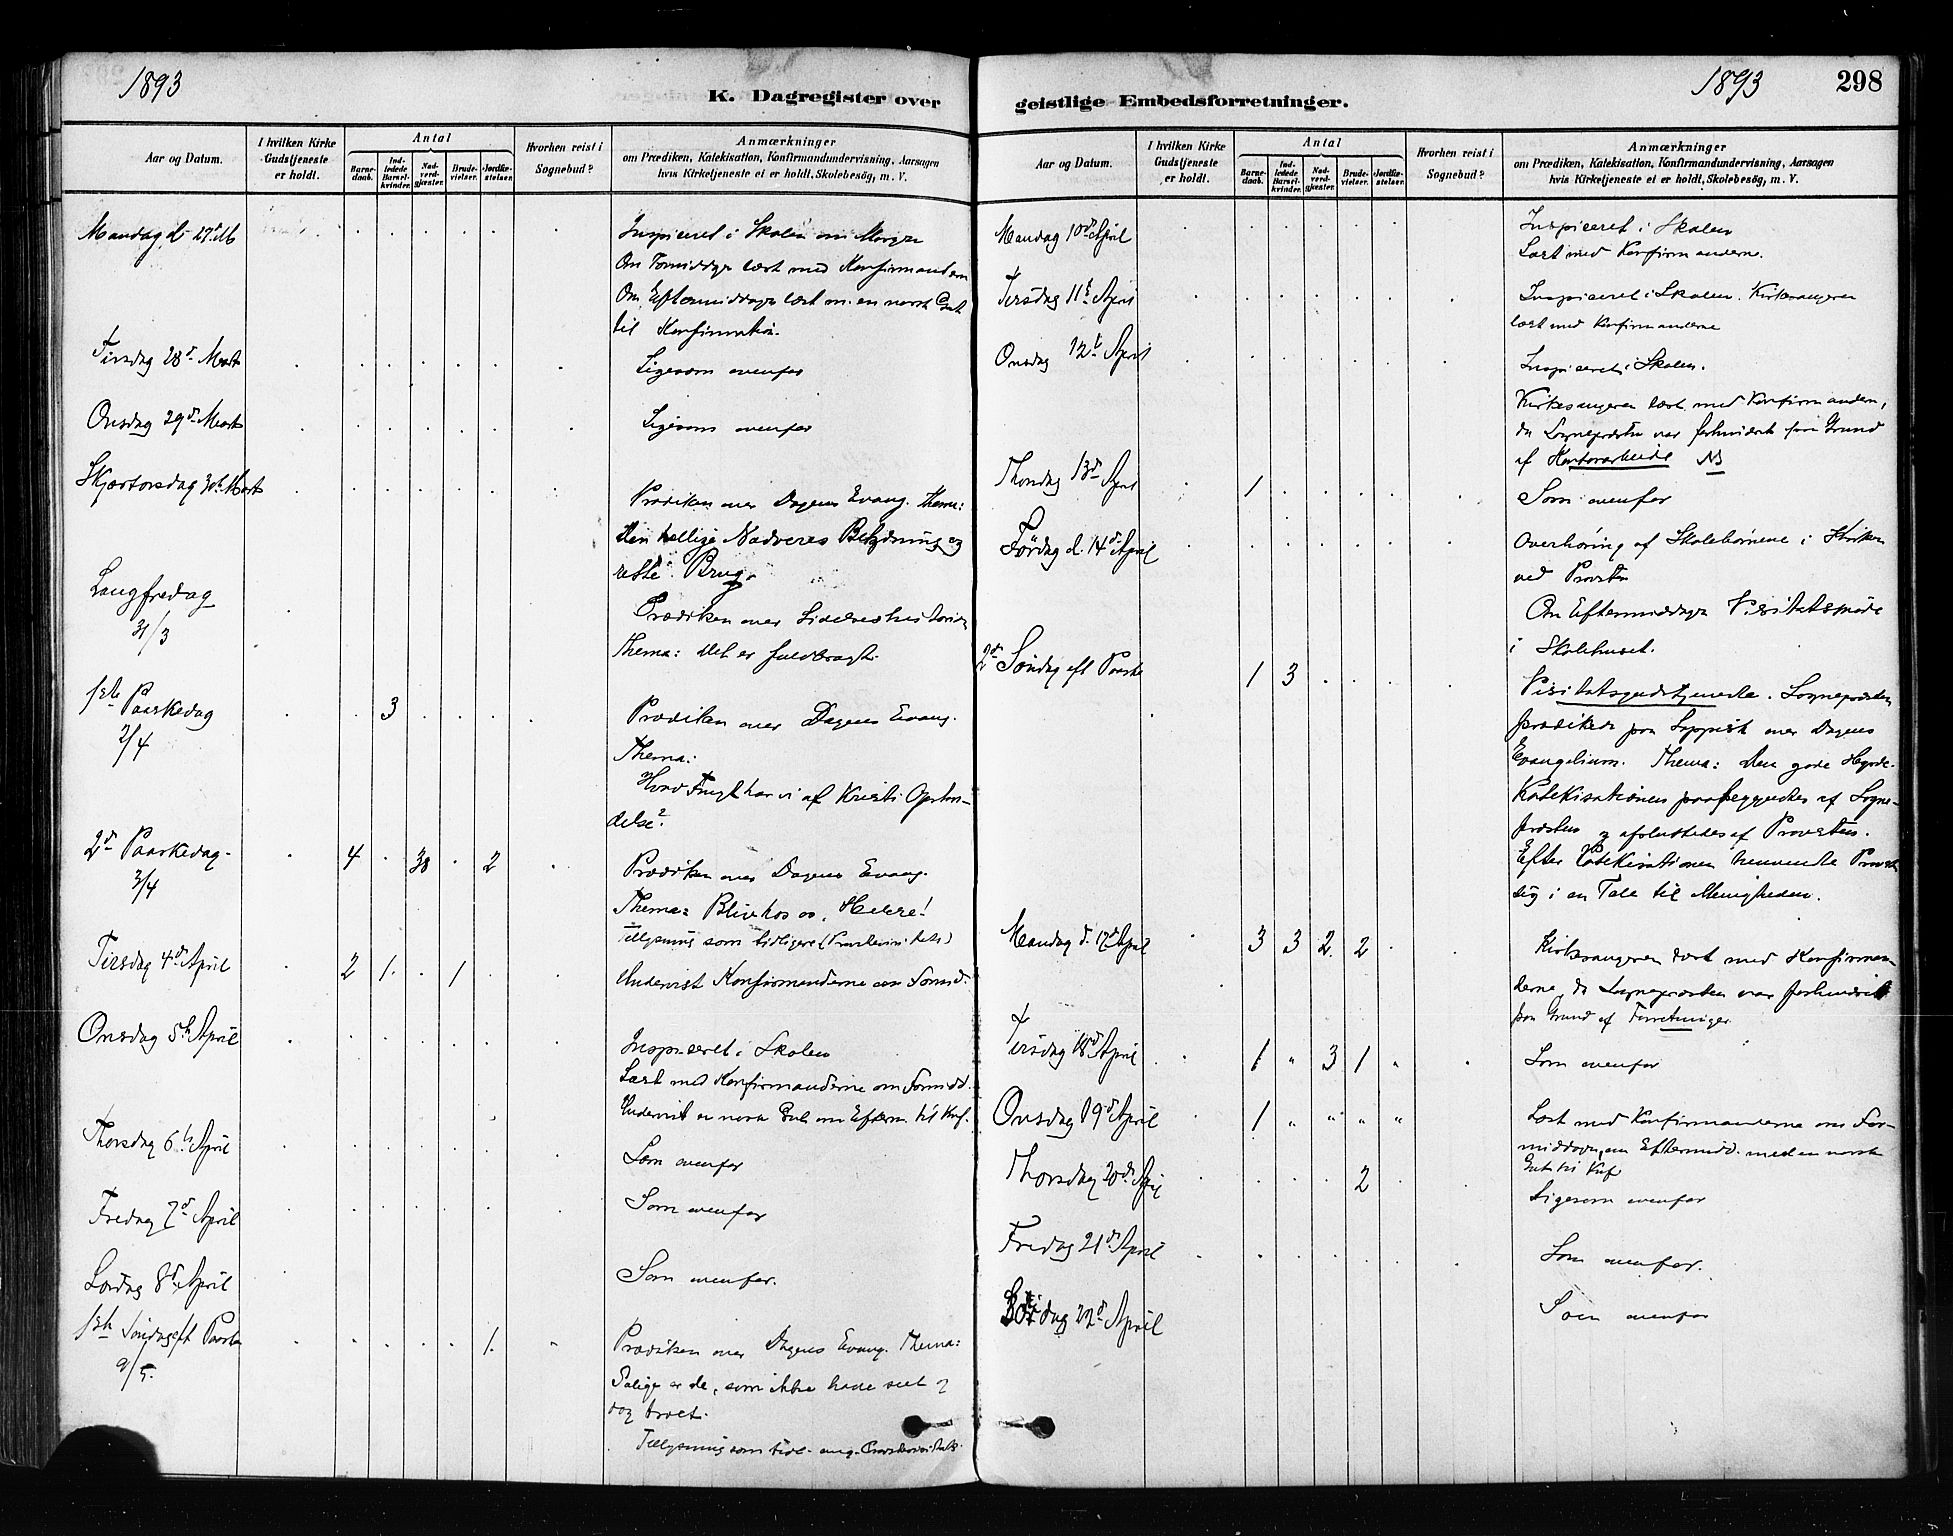 1893
K. Dagregister over
Aar og Datum.
I hvilken Kirke Gudstjeneste er holdt.
Antal
Barne-daab.
Ind-ledede Barsel-kvinder.
Nad-verd-gjester.
Brude-vielser.
Jordfæ-stelser.
Hvorhen reist i Sognebud?
Anmærkninger
om Prædiken, Katekisation, Konfirmandundervisning, Aarsagen
hvis Kirketjeneste ei er holdt, Skolebesøg, m. V.
Mandag d. 27 M
Inspiceret i Skolen om Morgen
Om Formiddagen læst med Konfirmanderne
Om Eftermiddagen læst m. en norsk Gut
til Konfirmation.
Tirsdag 28d Marts
Ligesom ovenfor
Onsdag 29d Marts
Ligesom ovenfor
Skjærtorsdag 30te Marts
Prædiken over Dagens Evang. Thema:
Den hellige Nadveres Betydning og
rette Brug.
Langfredag
31/3
Prædiken over Lidelseshistorien
Thema: Det er fuldbragt.
1ste Paaskedag
2/4
3
Prædiken over Dagens Evang.
Thema:
Hvad Frugt har vi af Kristi Opstan-
delse?
2d Paaskedag
3/4
4 38 2
Prædiken over Dagens Evang.
Thema: Bliv hos os, Herre!
Tillysning som tidligere (Provstevisitats)
Tirsdag 4d April
2 1 1
Undervist Konfirmanderne om Formid.
Onsdag 5te April
Inspiceret i Skolen
Læst med Konfirmanderne om Formidd.
Undervist en norsk Gut om Efterm. til Konf.
Thorsdag 6te April
Som ovenfor
Fredag 7d April
Som ovenfor
Lørdag 8d April
Som ovenfor.
1ste Søndag eft Paaske
9/5.
1.
Prædiken over Dagens Evang. Thema:
Salige er de, som ikke have seet og
dog troet.
Tillysning som tidl. ang. Provstevisitats.
1893
298
geistlige Embedsforretninger.
Aar og Datum.
I hvilken Kirke Gudstjeneste er holdt.
Antal
Barne-daab.
Ind-ledede Barsel-kvinder.
Nad-verd-gjester.
Brude-vielser.
Jordfæ-stelser.
Hvorhen reist i Sognebud?
Anmærkninger
om Prædiken, Katekisation, Konfirmandundervisning, Aarsagen
hvis Kirketjeneste ei er holdt, Skolebesøg, m. V.
Mandag 10d April
Inspiceret i Skolen
Læst med Konfirmanderne.
Tirsdag 11te April
Inspiceret i Skolen. Kirkesangeren
læst med Konfirmanderne
Onsdag 12te April
Inspiceret i Skolen.
Kirkesangeren læst med Konfirmandern,
da Sognepræsten var forhindret paa Grund
af Kontorarbeide NB
Thorsdag 13d April
1
Som ovenfor
Fredag d. 14d April
Overhøring af Skolebørnene i Kirken
ved Provsten
Om Eftermiddagen Visitatsmøde
i Skolehuset.
2d Søndag eft Paaske
1 3
Visitatsgudstjeneste. Sognepræsten
prædikede paa Lappisk over Dagens
Evangelium. Thema: Den gode Hyrde.
Katekisationen paabegyndtes af Sogne-
præsten og afsluttedes af Provsten.
Efter Katekisationen henvendte Provsten
sig i en Tale til Menigheden.
Mandag d. 17d April
3 3 2 2
Kirkesangeren læst med Konfirman-
derne, da Sognepræsten var forhindret
paa Grund af Forretninger
Tirsdag 18d April
1 " 3 1 "
Som ovenfor
Onsdag 19d April
1 " " " "
Læst med Konfirmanderne om For-
middagen, om Eftermidd. med en norsk
Gut til Knf
Thorsdag 20de April
2
Ligesom ovenfor
Fredag 21d April
Som ovenfor.
Lørdag 22d April
Som ovenfor